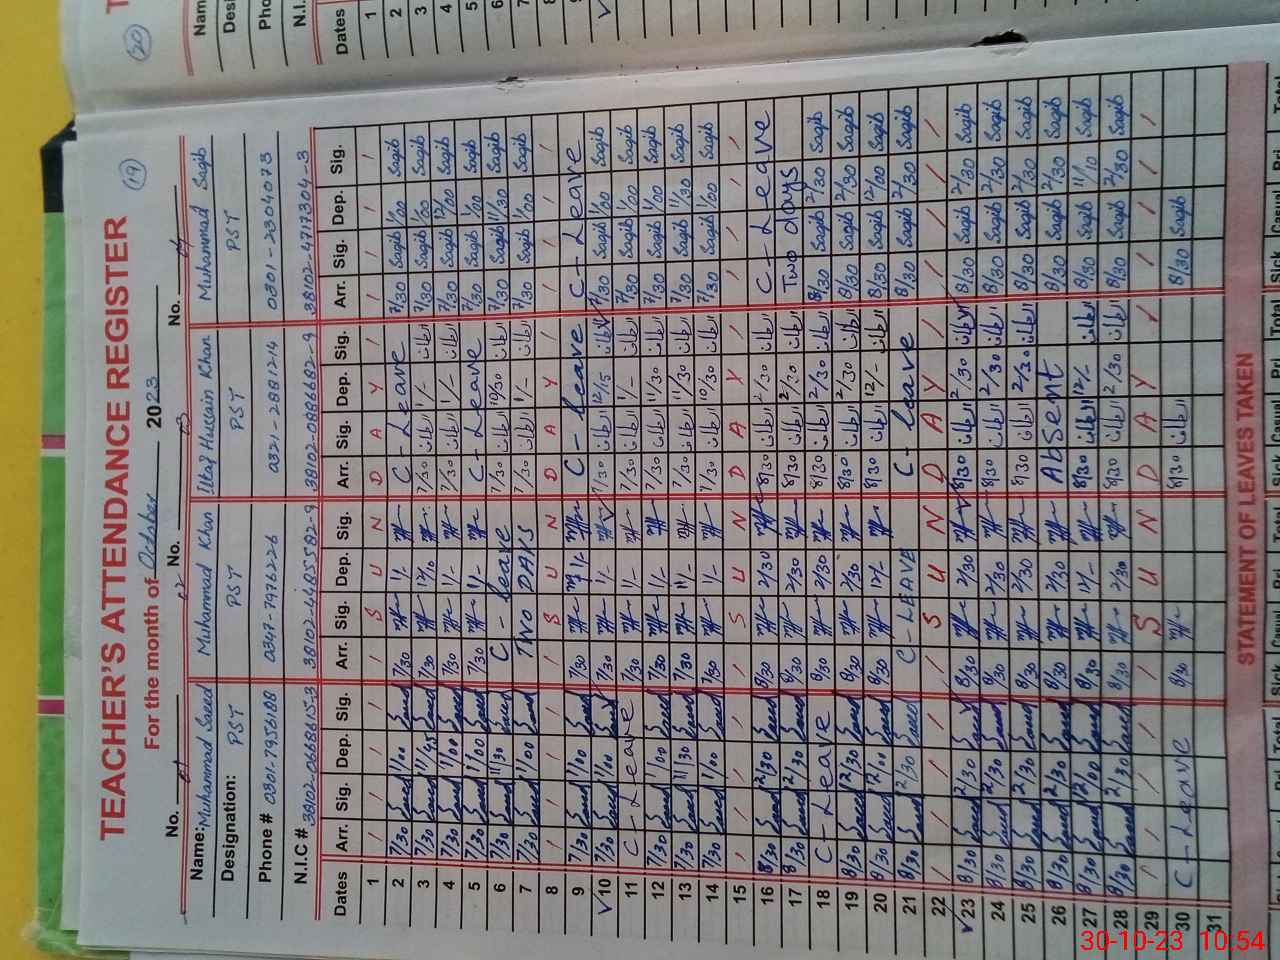 TEACHER'S ATTENDANCE REGISTER
19
For the month of October 2023
No. 01 No. 02 No. 03 No. 04
Name: Muhammad Saeed Muhammad Khan Iltaf Hussain Khan Muhammad Saqib
Designation: PST PST PST PST
Phone # 0301-7956188 0347-7976226 0321-2881214 0301-2304073
N.I.C #
Dates Arr. Sig. Dep. Sig. Arr. Sig. Dep. Sig. Arr. Sig. Dep. Sig. Arr. Sig. Dep. Sig.
1 / / / / / S U N D A Y / / / / /
2 7/30 Saeed 1/00 Saeed 7/30 1/- C-Leave 7/30 Saqib 1/00 Saqib
3 7/30 Saeed 11/45 Saeed 7/30 12/10 7/30 الطاف 1/- الطاف 7/30 Saqib 1/00 Saqib
4 7/30 Saeed 1/00 Saeed 7/30 1/- 7/30 الطاف 1/- الطاف 7/30 Saqib 12/00 Saqib
5 7/30 Saeed 1/00 Saeed 7/30 1/- C-Leave 7/30 Saqib 1/00 Saqib
6 7/30 Saeed 11/30 Saeed C-leave 7/30 الطاف 10/30 الطاف 7/30 Saqib 11/30 Saqib
7 7/30 Saeed 1/00 Saeed TWO DAYS 7/30 الطاف 1/- الطاف 7/30 Saqib 1/00 Saqib
8 / / / / / S U N D A Y / / / / /
9 7/30 Saeed 1/00 Saeed 7/30 1/- C-leave C-Leave
10 7/30 Saeed 1/00 Saeed 7/30 1/- 7/30 الطاف 12/15 الطاف 7/30 Saqib 1/00 Saqib
11 C-Leave 7/30 1/- 7/30 الطاف 1/- الطاف 7/30 Saqib 1/00 Saqib
12 7/30 Saeed 1/00 Saeed 7/30 1/- 7/30 الطاف 11/30 الطاف 7/30 Saqib 1/00 Saqib
13 7/30 Saeed 11/30 Saeed 7/30 11/- 7/30 الطاف 11/30 الطاف 7/30 Saqib 11/30 Saqib
14 7/30 Saeed 1/00 Saeed 7/30 1/- 7/30 الطاف 10/30 الطاف 7/30 Saqib 1/00 Saqib
15 / / / / / S U N D A Y / / / / /
16 8/30 Saeed 2/30 Saeed 8/30 2/30 8/30 الطاف 2/30 الطاف C-Leave
17 8/30 Saeed 2/30 Saeed 8/30 2/30 8/30 الطاف 2/30 الطاف Two days
18 C-Leave 8/30 2/30 8/30 الطاف 2/30 الطاف 8/30 Saqib 2/30 Saqib
19 8/30 Saeed 2/30 Saeed 8/30 2/30 8/30 الطاف 2/30 الطاف 8/30 Saqib 2/30 Saqib
20 8/30 Saeed 12/00 Saeed 8/30 12/- 8/30 الطاف 12/- الطاف 8/30 Saqib 12/00 Saqib
21 8/30 Saeed 2/30 Saeed C-LEAVE C-leave 8/30 Saqib 2/30 Saqib
22 / / / / / S U N D A Y / / / / /
23 8/30 Saeed 2/30 Saeed 8/30 2/30 8/30 الطاف 2/30 الطاف 8/30 Saqib 2/30 Saqib
24 8/30 Saeed 2/30 Saeed 8/30 2/30 8/30 الطاف 2/30 الطاف 8/30 Saqib 2/30 Saqib
25 8/30 Saeed 2/30 Saeed 8/30 2/30 8/30 الطاف 2/30 الطاف 8/30 Saqib 2/30 Saqib
26 8/30 Saeed 2/30 Saeed 8/30 2/30 Absent 8/30 Saqib 2/30 Saqib
27 8/30 Saeed 12/00 Saeed 8/30 12/- 8/30 الطاف 12/- الطاف 8/30 Saqib 11/10 Saqib
28 8/30 Saeed 2/30 Saeed 8/30 2/30 8/30 الطاف 2/30 الطاف 8/30 Saqib 2/30 Saqib
29 / / S U N D A Y / / / /
30 C-Leave 8/30 8/30 الطاف 8/30 Saqib
31
STATEMENT OF LEAVES TAKEN
20
Dates
1
2
3
4
5
6
7
8
9
30-10-23 10:54